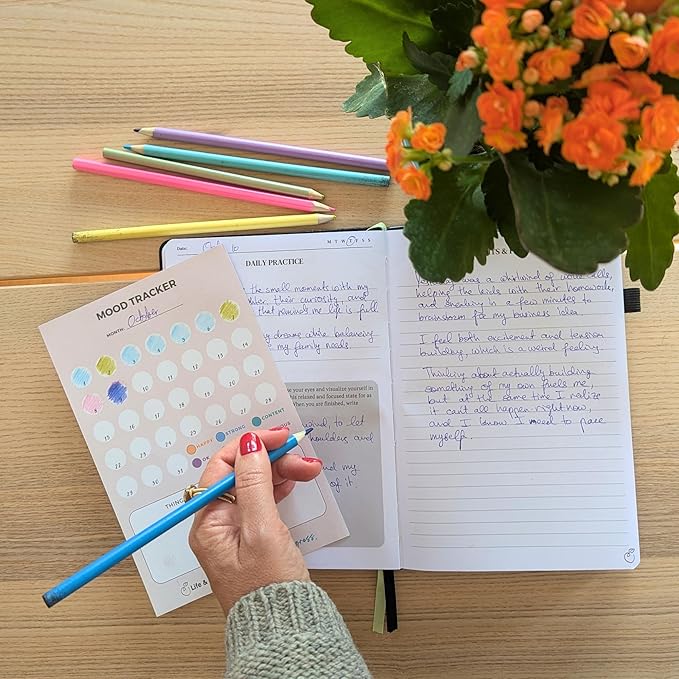 MOOD TRACKER
MONTH: October
8 9 10 11 12 13 14
15 16 17 18 19 20 21
22 23 24 25 26 27 28
29 30 31
HAPPY STRONG CONTENT
OK
Life &
Date: Oct 16 M T W T F S S
DAILY PRACTICE
the small moments with my
their curiosity, and
that reminds me life is full
my dreams while balancing
my family needs.
se your eyes and visualize yourself in
his relaxed and focused state for as
When you are finished, write
to let
shoulders and
and my
of it.
was a whirlwind of work calls,
helping the kids with their homework,
and sneaking in a few minutes to
brainstorm for my business idea.
I feel both excitement and tension
building, which is a weird feeling.
Thinking about actually building
something of my own fuels me,
but at the same time I realize
it can't all happen right now,
and I know I need to pace
myself.
Life &